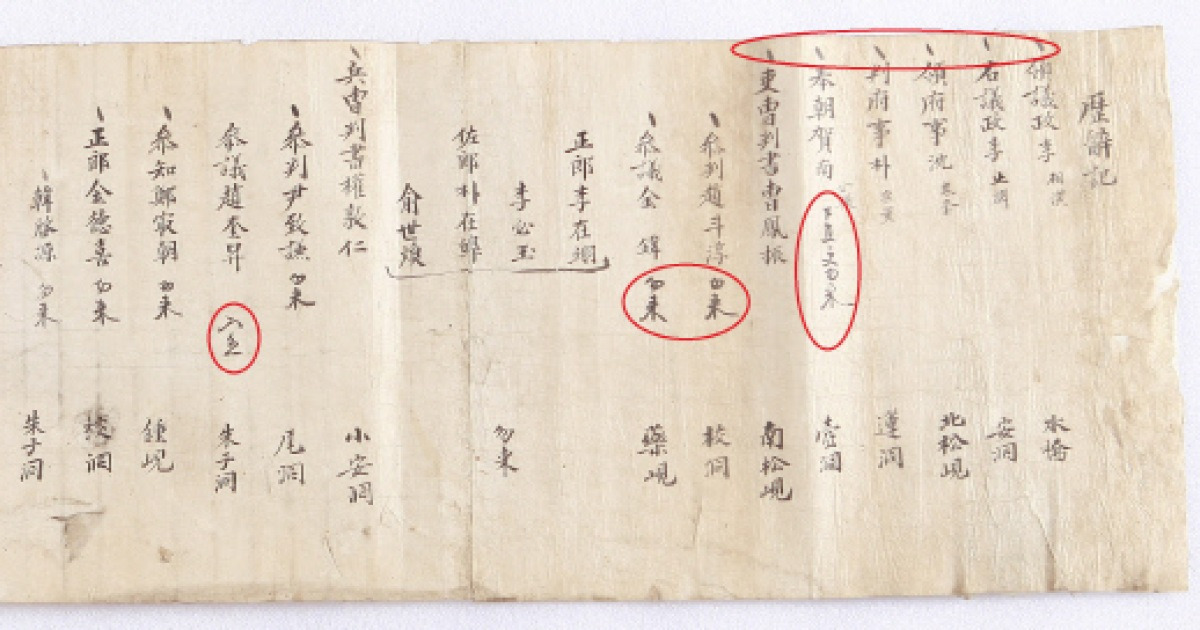 歷辭記
領議政 李 相璜 水橋
右議政 李 止淵 安洞
領府事 沈 象奎 北松峴
判府事 朴 宗薰 蓮洞
奉朝賀 南 壺洞
吏曹判書 曺鳳振 南松峴
參判 趙斗淳 勿來 校洞
參議 金 鏵 勿來 藥峴
正郎 李在
李必玉
佐郎 朴在 勿來
俞世煥
兵曹判書 權敦仁 小安洞
參判 尹致謙 勿來 尾洞
參議 趙奎昇 入直 朱子洞
參知 鄭寂朝 勿來 鍾峴
正郎 金德喜 勿來 校洞
韓啓源 勿來 朱子洞